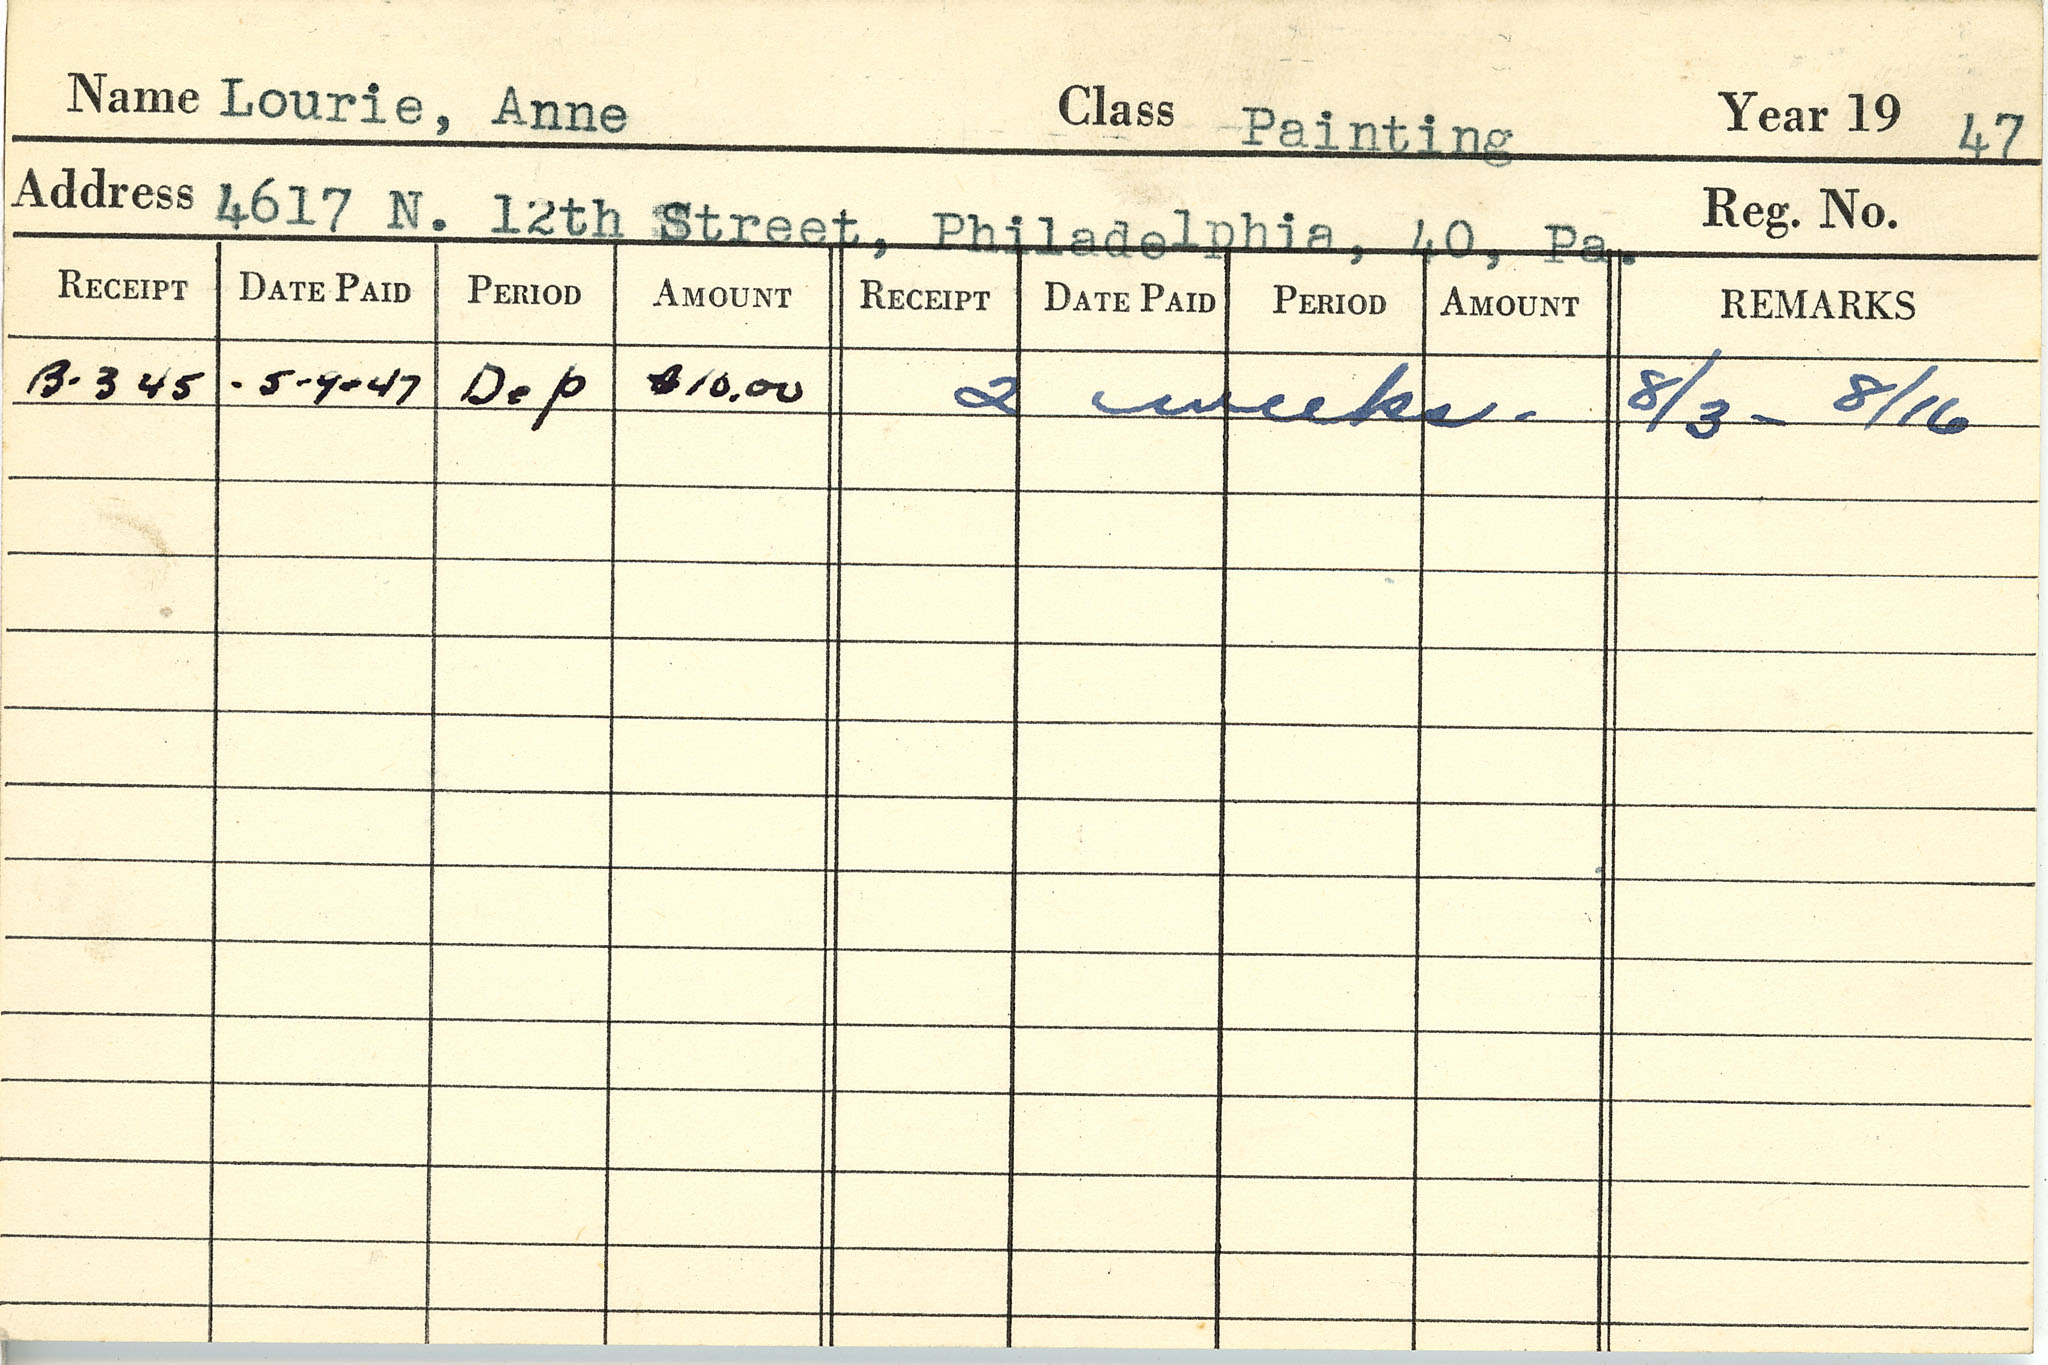 Name Lourie, Anne Class Painting Year 19 47
Address 4617 N. 12th Street, Philadelphia, 40, Pa. Reg. No.
RECEIPT DATE PAID PERIOD AMOUNT RECEIPT DATE PAID PERIOD AMOUNT REMARKS
B-345 - 5-9-47 Dep $10.00 2 weeks. 8/3 - 8/16